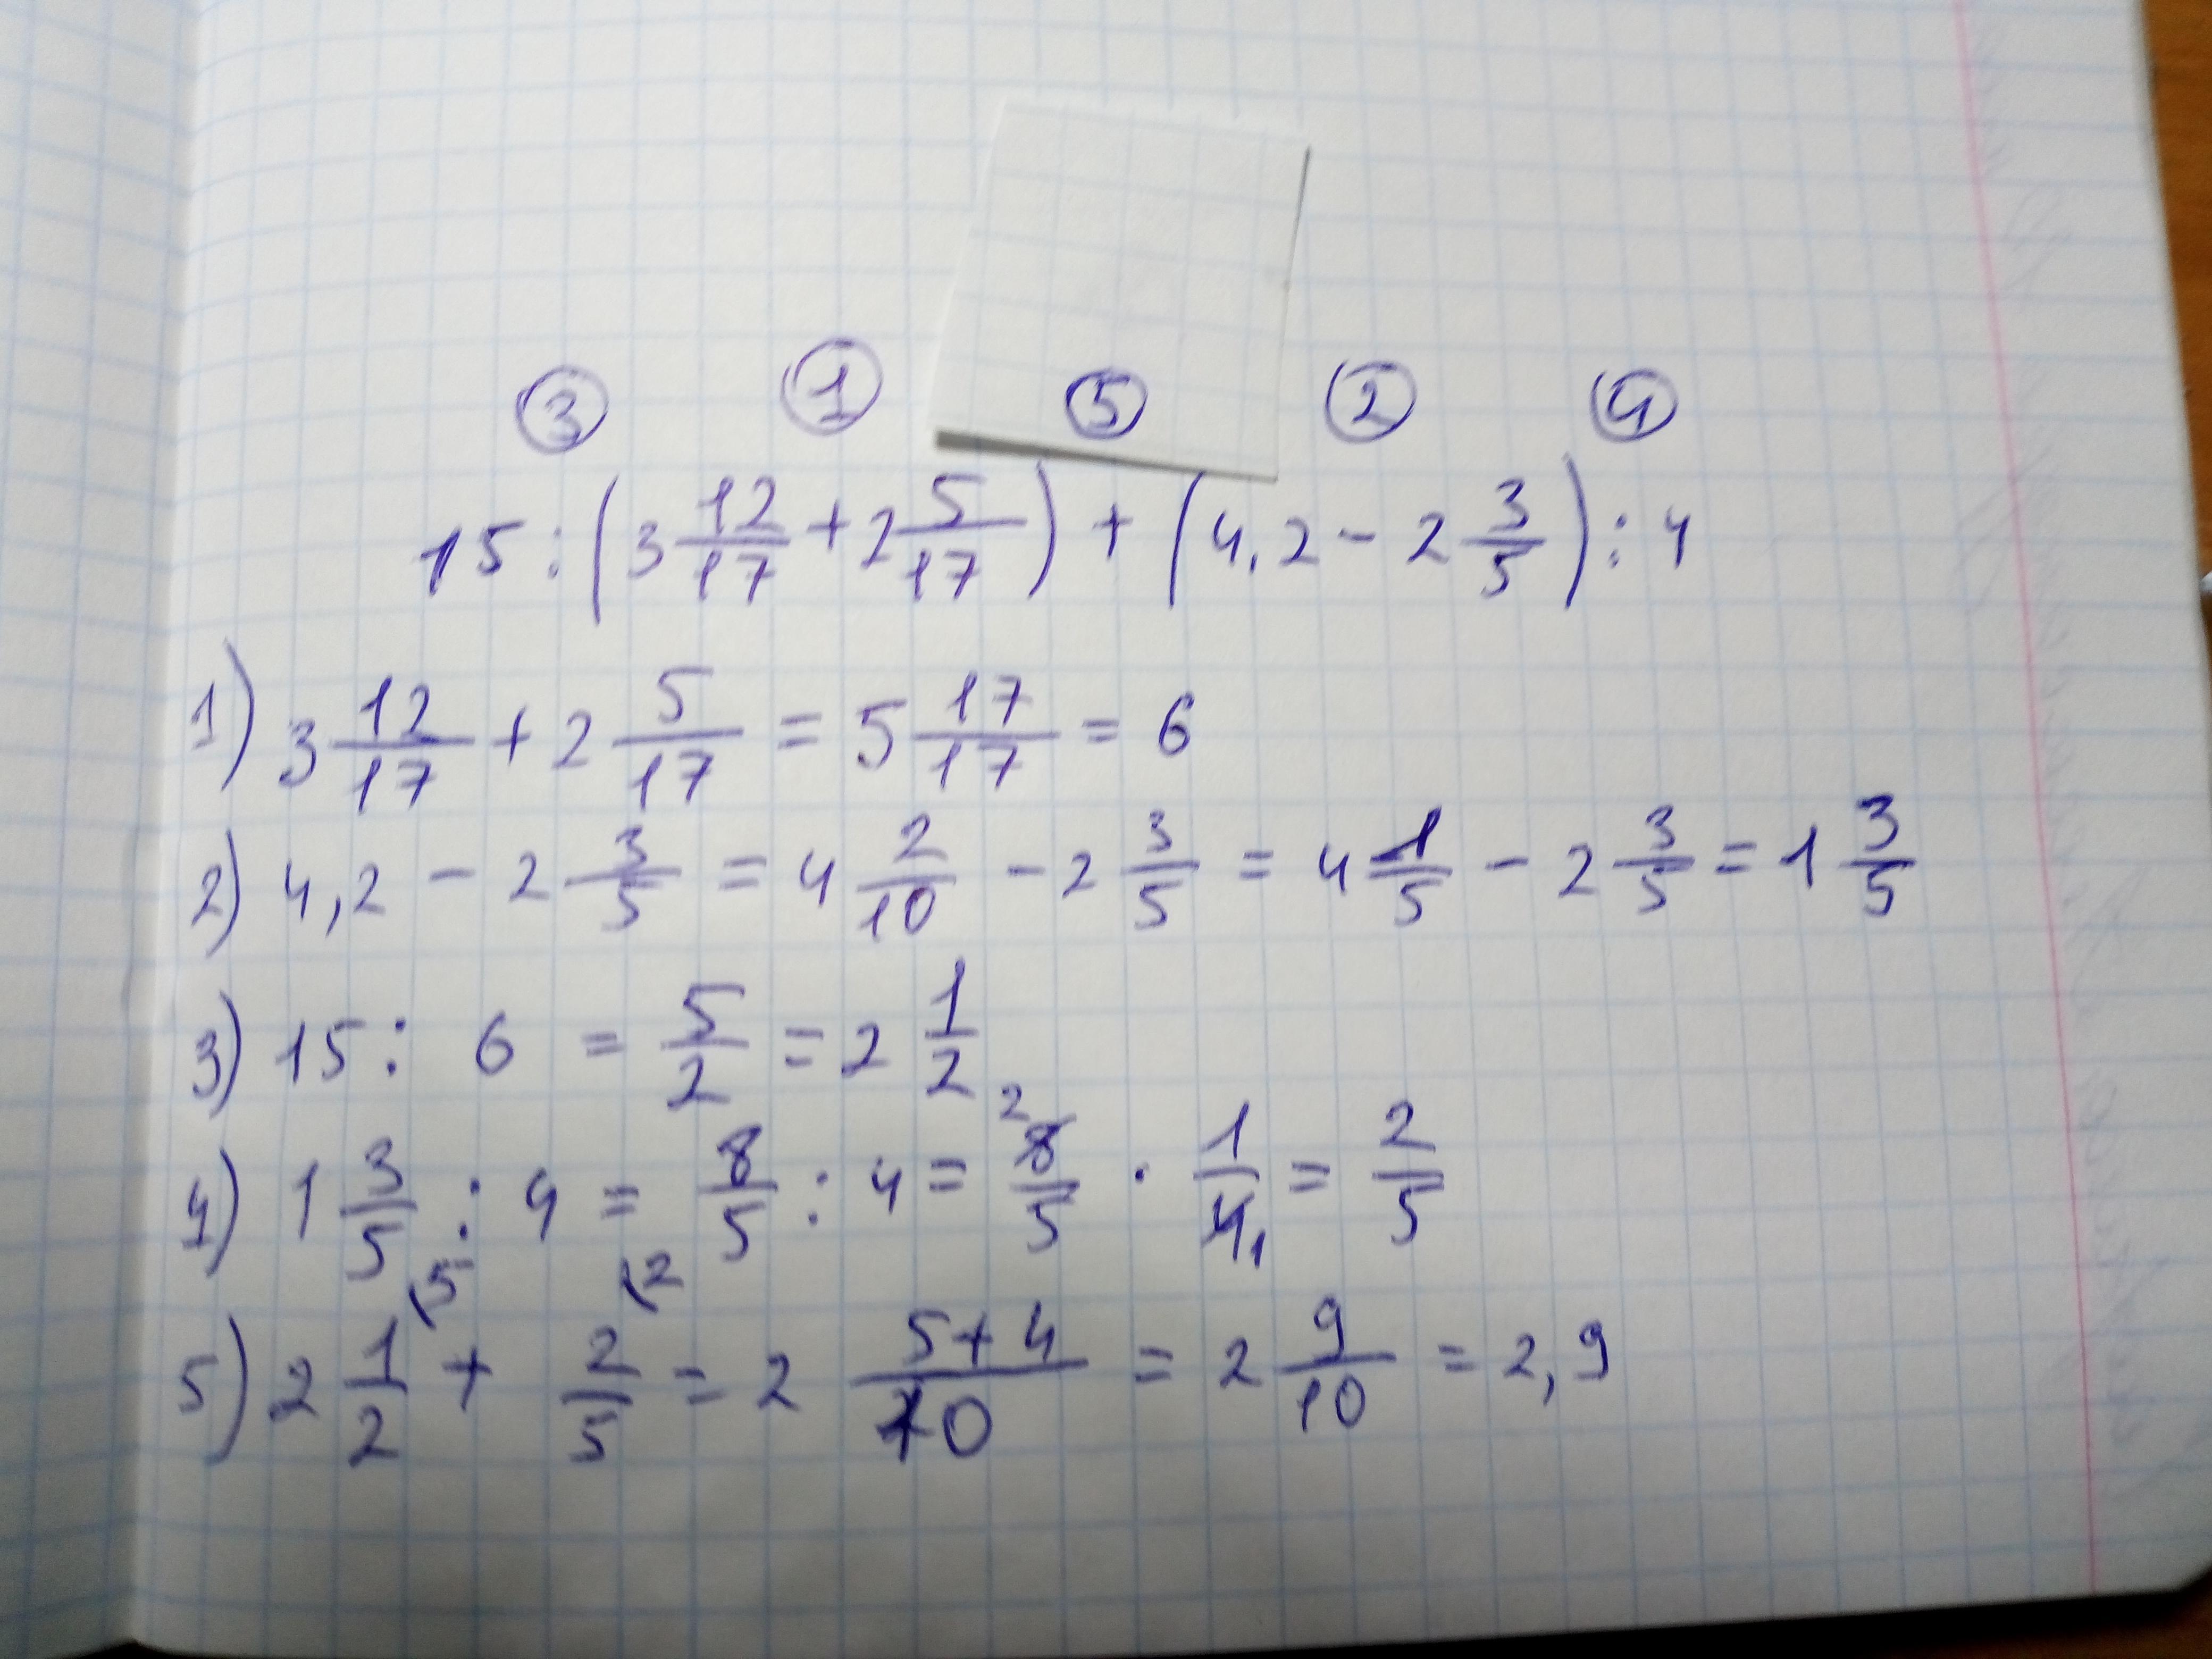 ③ ① ⑤ ② ④
15 : (3 12/17 + 2 5/17) + (4,2 - 2 3/5) : 4
1) 3 12/17 + 2 5/17 = 5 17/17 = 6
2) 4,2 - 2 3/5 = 4 2/10 - 2 3/5 = 4 1/5 - 2 3/5 = 1 3/5
3) 15 : 6 = 5/2 = 2 1/2
4) 1 3/5 : 4 = 8/5 : 4 = 8/5 2 · 1/4 1 = 2/5
5) 2 1/2 (5 + 2/5 (2 = 2 5+4/10 = 2 9/10 = 2,9